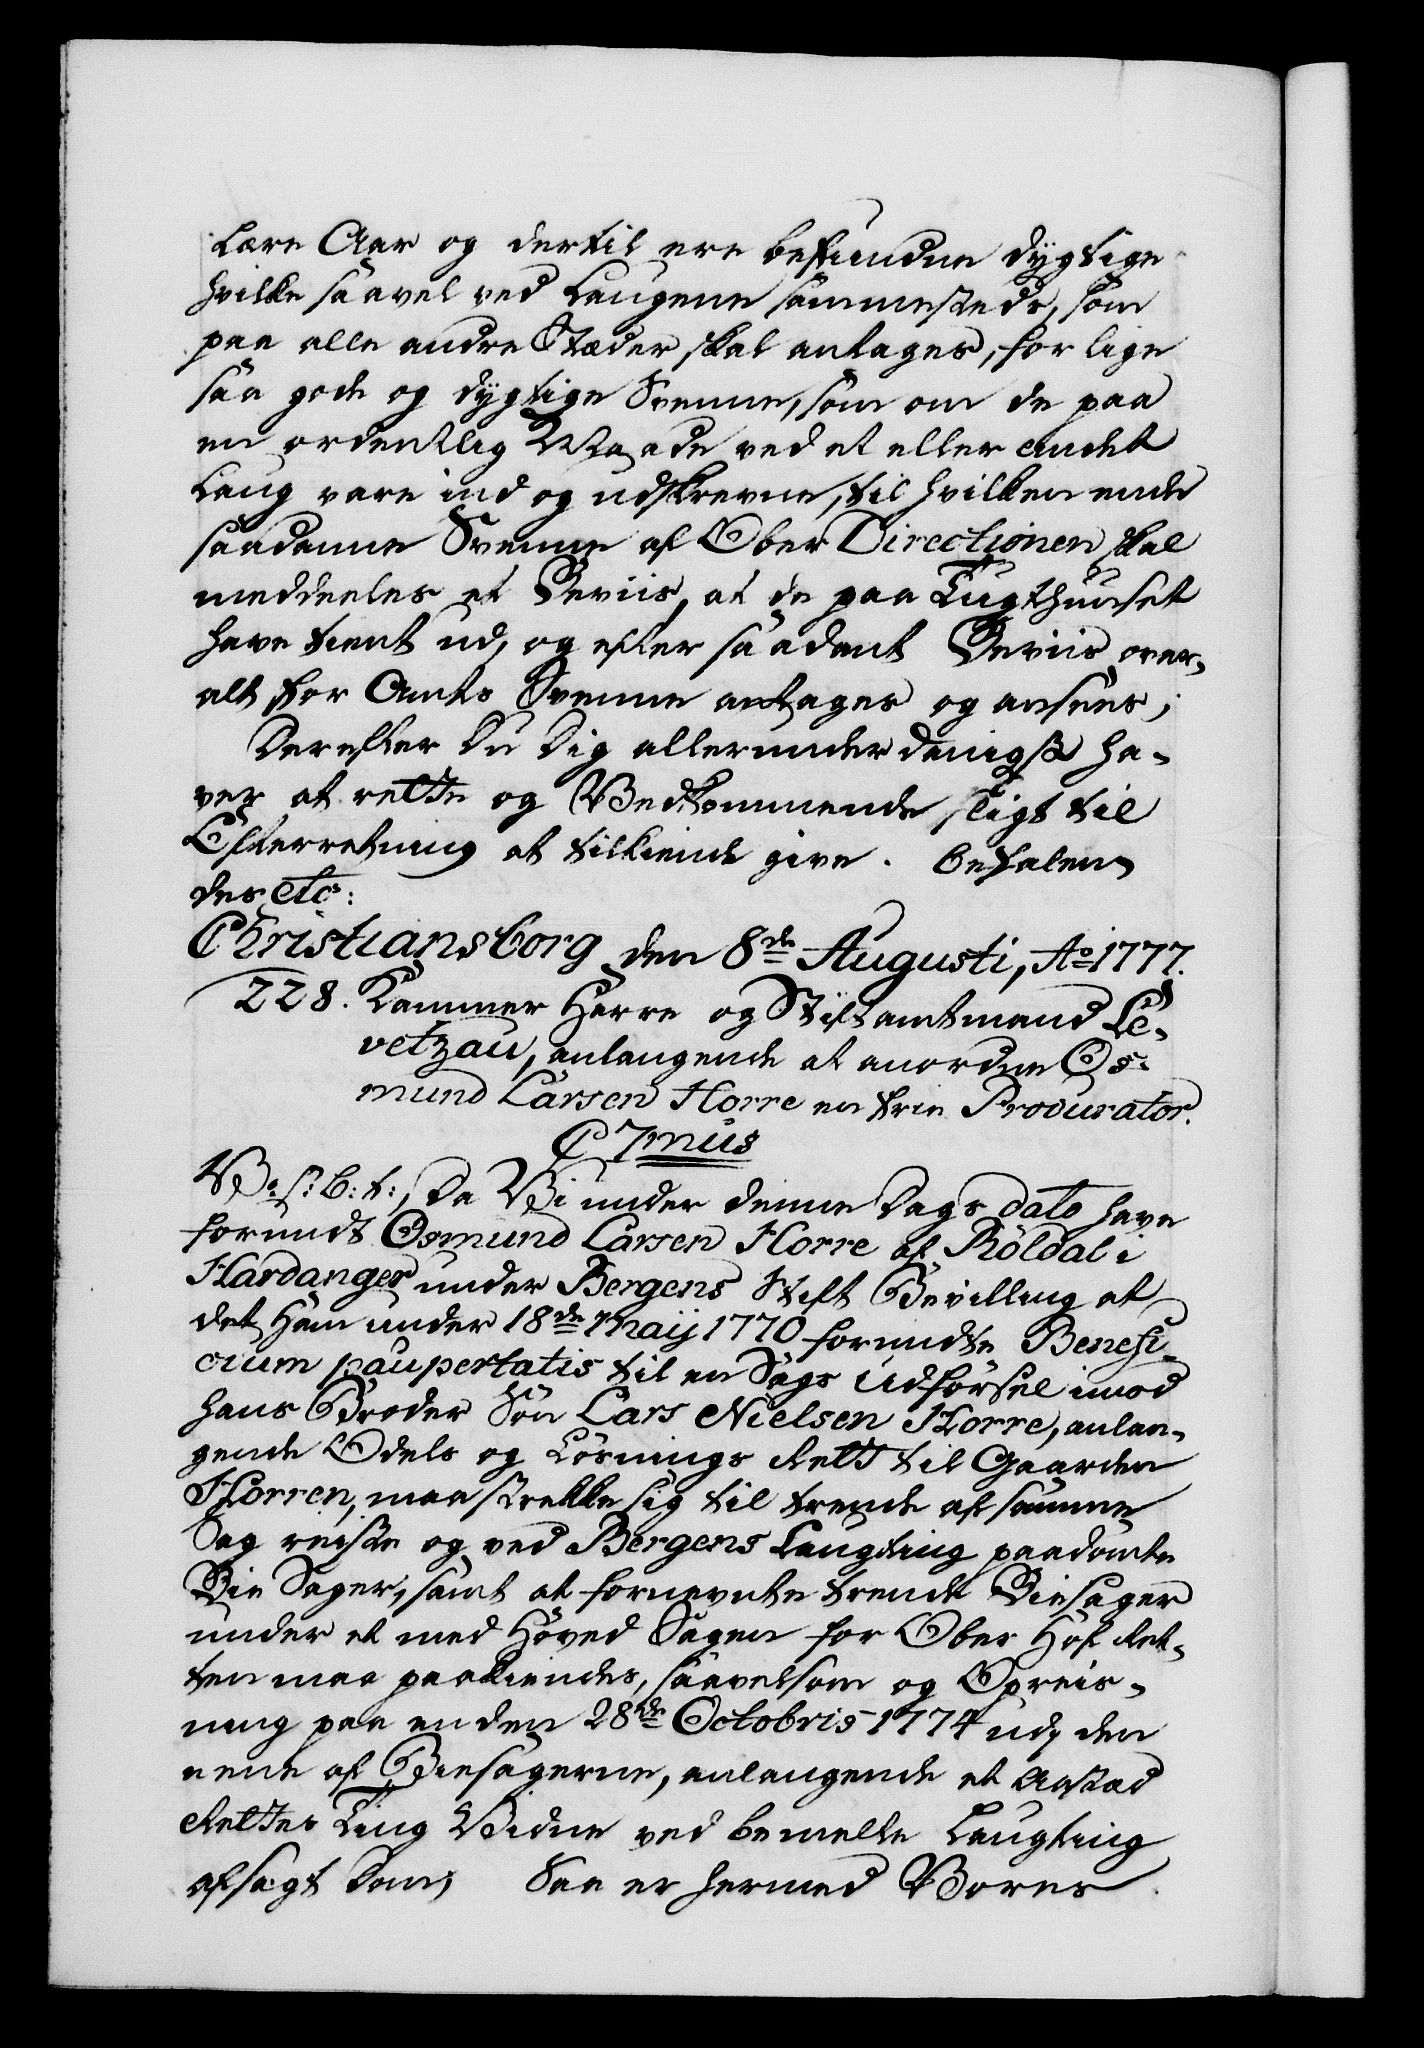 Lære Aar og dertil ere befundne dygtige
hvilke saavel ved Laugene sammesteds, som
paa alle andre Stæder skal antages, for lige
saa gode og dygtige Svenne, som om de paa
en ordentlig Maade ved et eller andet
Laug vare ind og udskrevne, til hvilken ende
saadanne Svenne af Ober Directionen skal
meddeeles et Beviis, at de paa Tugthuuset
have tient ud, og efter saadant Beviis over-
alt for Amts Svenne antages og ansees;
Derefter Du Dig allerunderdanigst ha-
ver at rette og Vedkommende sligt til
Efterretning at tilkiende give. Befalen-
des etc:
Christiansborg den 8de Augusti, Ao 1777.
228. Kammer Herre og Stiftamtmand Le-
vetzau, anlangende at anordne Os-
mund Larsen Horre en frie Procurator.
C 7mus
V. s: b: t:, Da Vi under denne Dags dato have
forundt Osmund Larsen Horre af Röldal i
Hardanger under Bergens Stift Bevilling at
det ham under 18de Maij 1770 forundte Benefi-
cium paupertatis til en Sags Udförsel imod
hans Broder Sön Lars Nielsen Horre, anlan-
gende Odels og Lösnings Rett til Gaarden
Horren, maa strekke sig til trende af samme
Sag reiste og ved Bergens Laugting paadömte
Bie Sager, samt at fornevnte trende Biesager
under et med Hoved Sagen for Ober Hof Ret-
ten maa paakiendes, saavelsom og Opreis-
ning paa en den 28de Octobris 1774 udj den
eene af Biesagerne, anlangende et Aastæd
Rettes Ting Vidne ved bemelte Laugting
afsagt Dom; Saa er hermed Vores